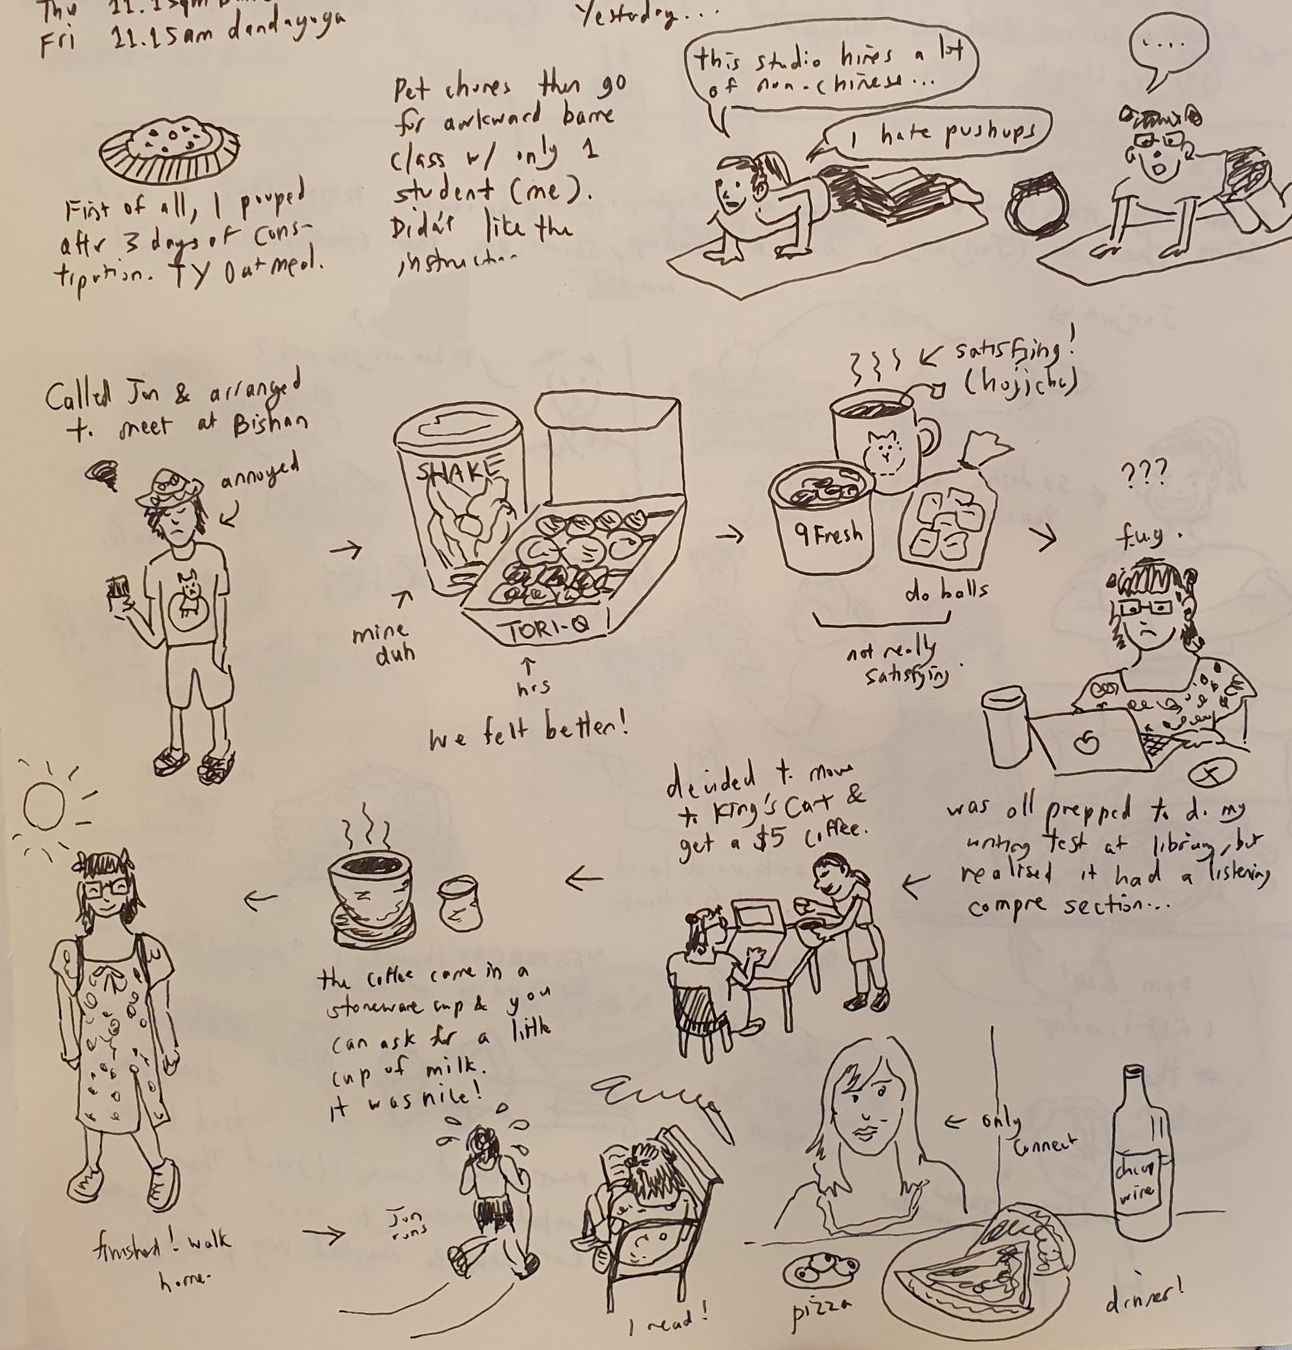 Thu 11.15am
Fri 11.15am dandayoga
Yesterday...
First of all, I pooped
after 3 days of cons-
tipation. TY Oatmeal.
Pet chores then go
for awkward barre
class w/ only 1
student (me).
Didn't like the
this studio hires a lot
of non-chinese...
I hate pushups
....
Called Jun & arranged
to meet at Bishan
annoyed
SHAKE
mine
duh
TORI-Q
hrs
we felt better!
satisfying!
(hojicha)
9Fresh
do balls
not really
satisfying.
???
fug.
was all prepped to do my
writing test at library, but
realised it had a listening
compre section...
decided to move
to King's Cart &
get a $5 coffee.
the coffee came in a
stoneware cup & you
can ask for a little
cup of milk.
it was nice!
finished! walk
home.
Jun
runs
I read!
only
connect
pizza
cheap
wine
dinner!